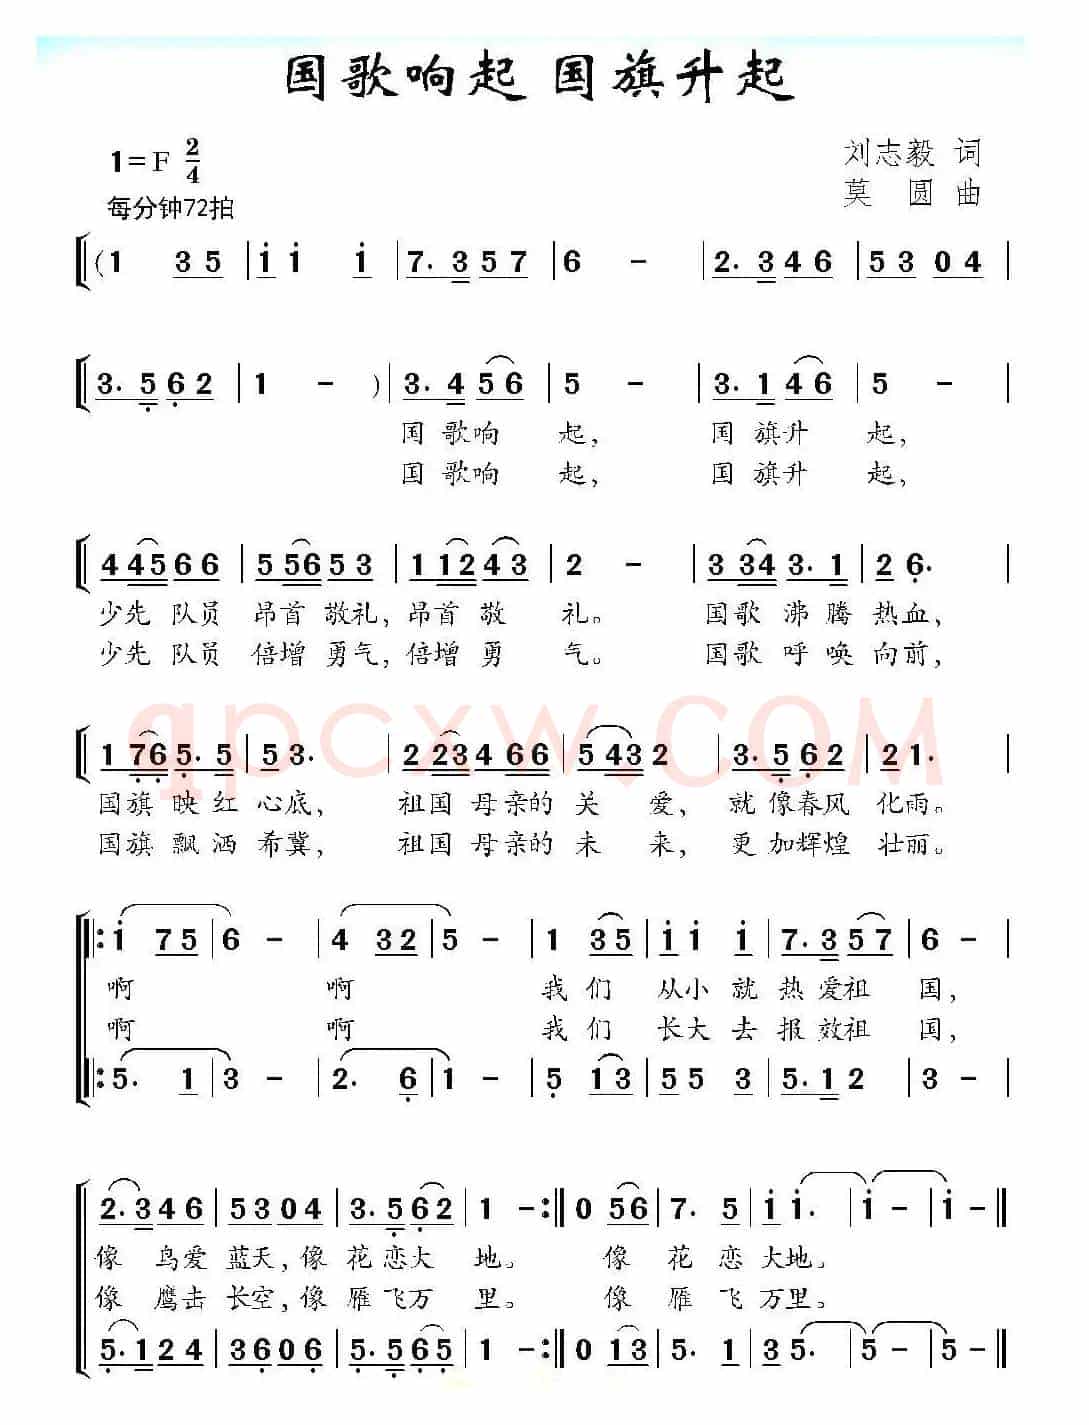 国歌响起 国旗升起
1=F 2/4
刘志毅 词
每分钟72拍
莫 圆 曲
(1 35 | i i i | 7. 3 5 7 | 6 - | 2. 3 4 6 | 5 3 0 4 |
3. 5 6 2 | 1 - ) | 3. 4 5 6 | 5 - | 3. 1 4 6 | 5 - |
国 歌响 起, 国 旗升 起,
国 歌响 起, 国 旗升 起,
4 4 5 6 6 | 5 5 6 5 3 | 1 1 2 4 3 | 2 - | 3 3 4 3. 1 | 2 6. |
少先 队员 昂首 敬礼, 昂首 敬 礼。 国歌 沸 腾 热血,
少先 队员 倍增 勇气, 倍增 勇 气。 国歌 呼 唤 向前,
qpcxw.COM
1 7 6 5. 5 | 5 3. | 2 2 3 4 6 6 | 5 4 3 2 | 3. 5 6 2 | 2 1. |
国旗 映 红 心底, 祖国 母亲的 关 爱, 就 像春风 化雨。
国旗 飘 洒 希冀, 祖国 母亲的 未 来, 更 加辉煌 壮丽。
|: i 7 5 | 6 - | 4 3 2 | 5 - | 1 3 5 | i i i | 7. 3 5 7 | 6 - |
啊 啊 我 们 从小 就 热 爱祖 国,
啊 啊 我 们 长大 去 报 效祖 国,
|: 5. 1 | 3 - | 2. 6 | 1 - | 5 1 3 | 5 5 3 | 5. 1 2 | 3 - |
2. 3 4 6 | 5 3 0 4 | 3. 5 6 2 | 1 - :| 0 5 6 | 7. 5 | i i. | i - | i - ||
像 鸟爱 蓝天, 像 花 恋大 地。 像 花 恋 大地。
像 鹰击 长空, 像 雁 飞万 里。 像 雁 飞 万里。
5. 1 2 4 | 3 6 0 6 | 5. 5 6 5 | 1 - :| 0 1 3 | 5. 1 | 3 5. | 5 - | 5 - ||